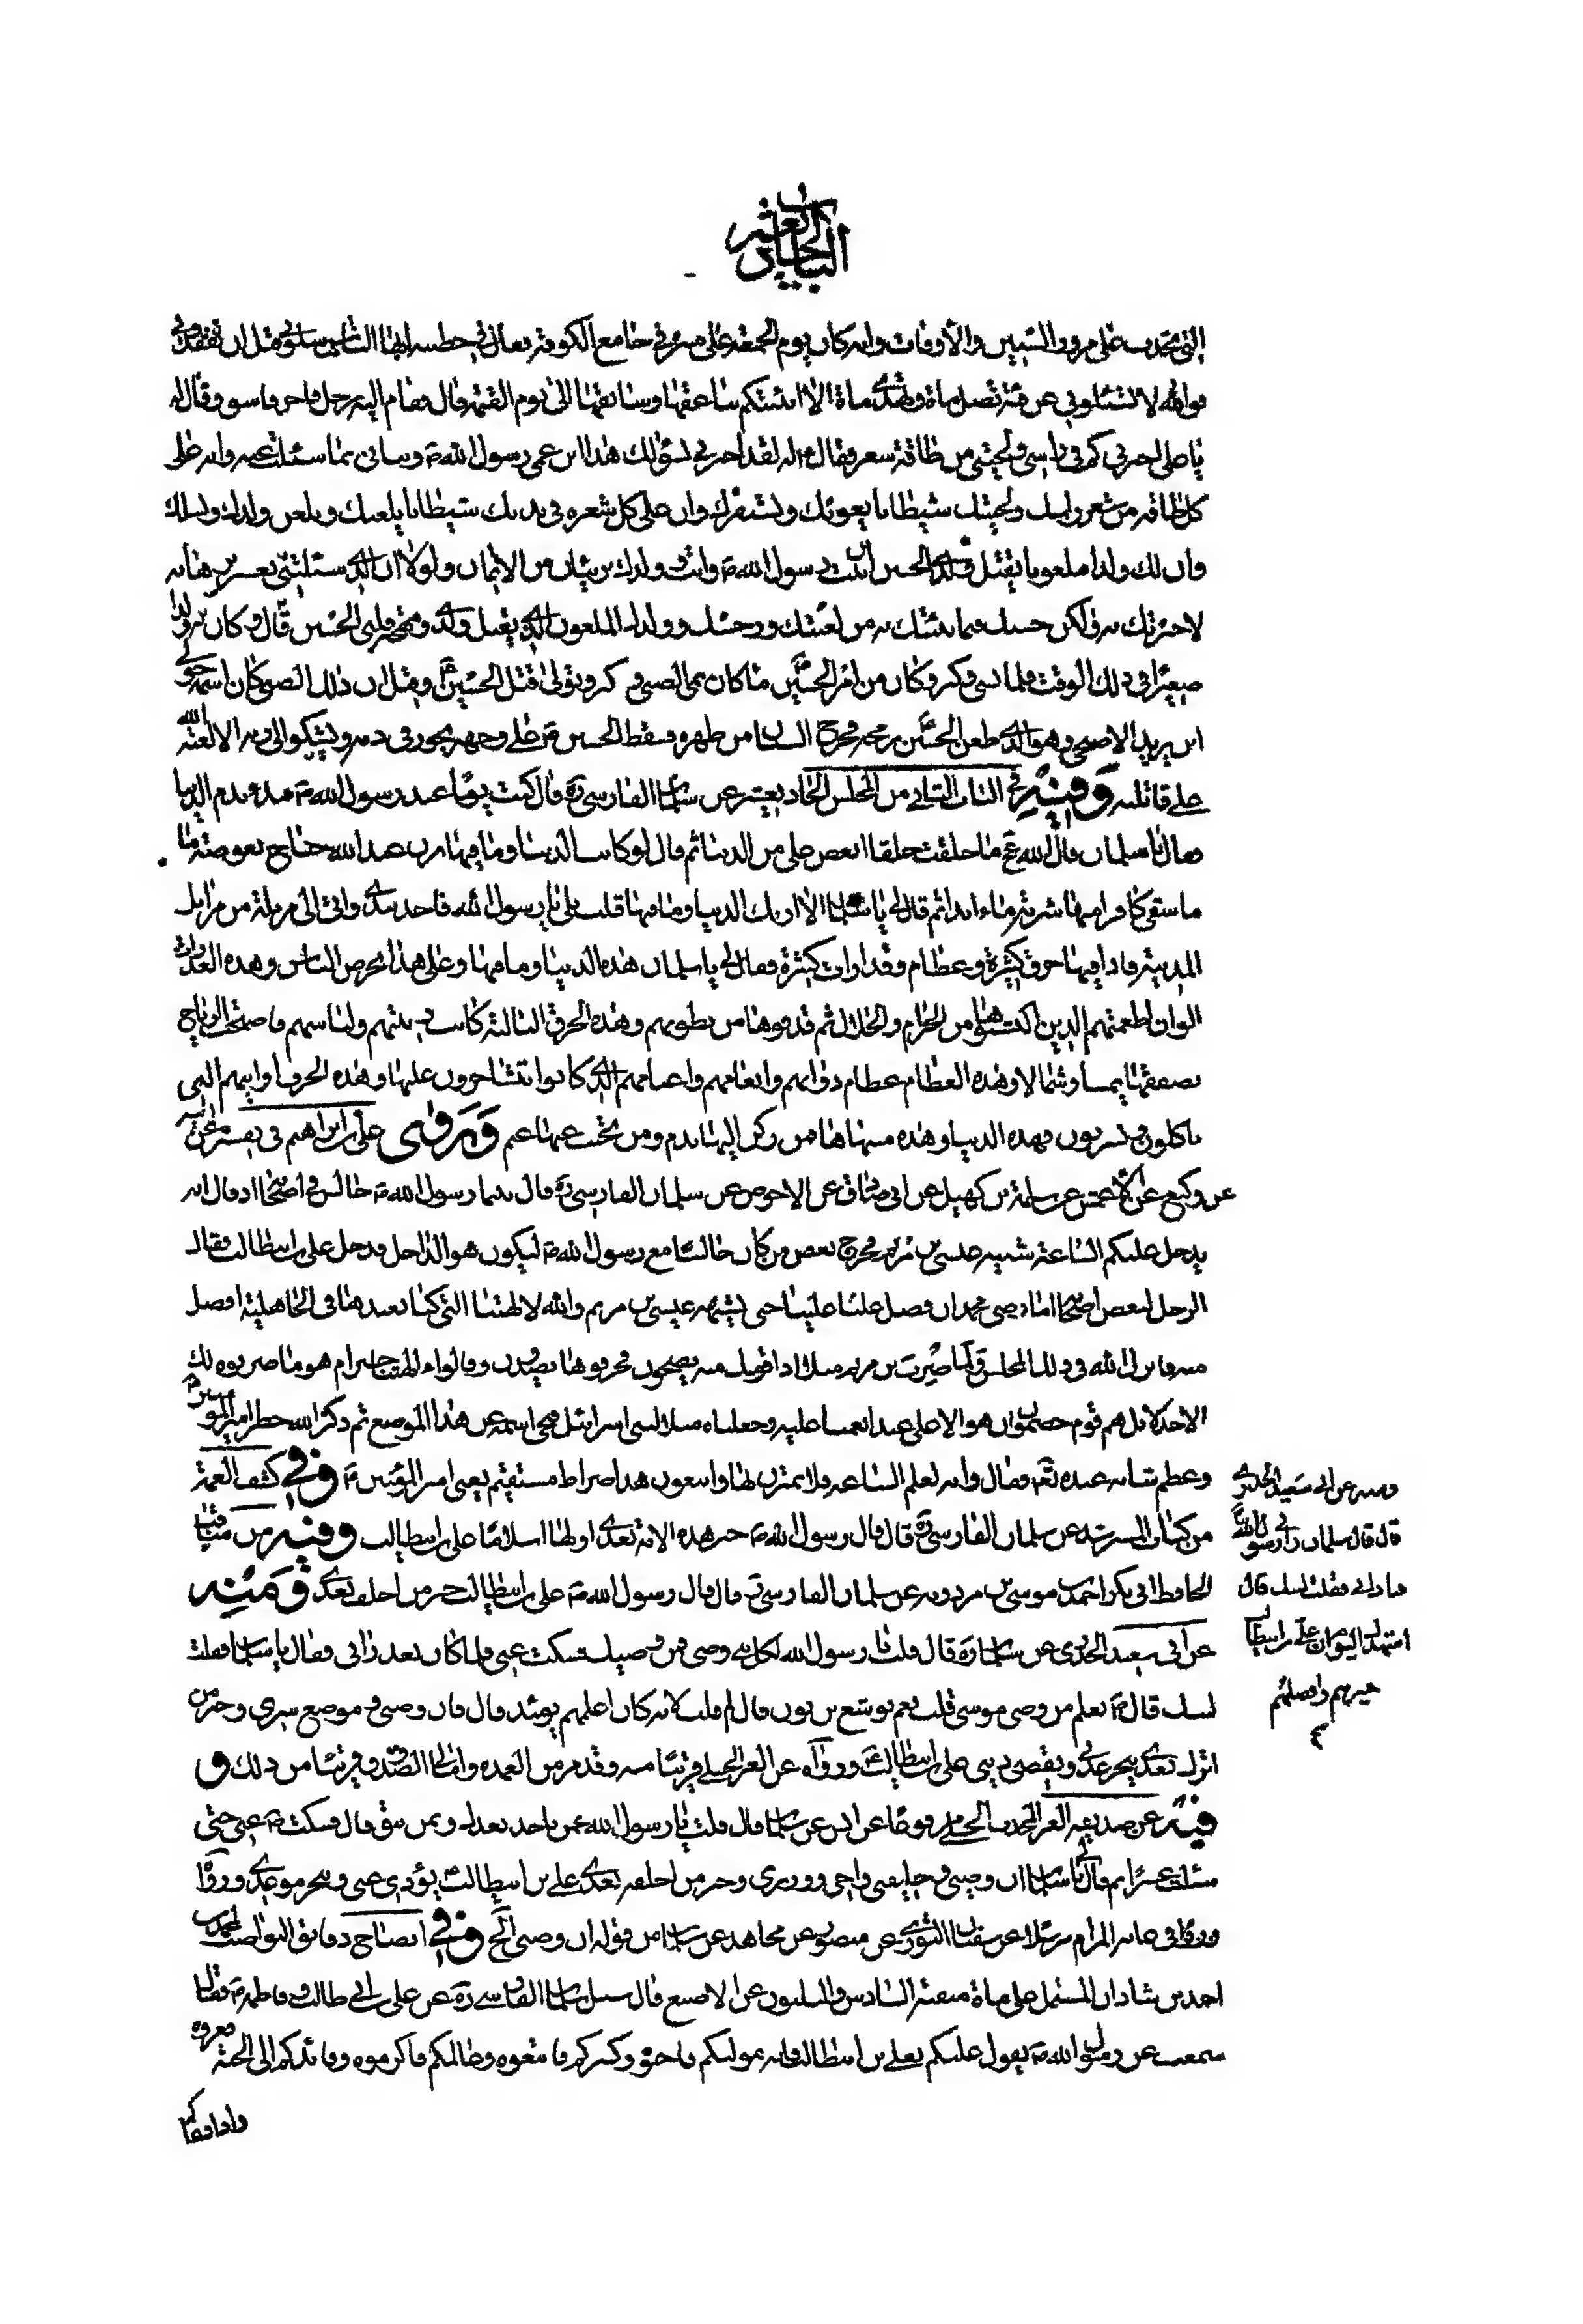 الباب الحادي عشر
التي تحدث على مرور السنين والأوقات وانه كان يوم الجمعة على منبره في جامع الكوفة فقال في خطبته ايها الناس سلوني قبل ان تفقدوني
فوالله لا تسئلوني عن فئة تضل مأة وتهدي مأة الا انبئتكم بناعقها وسائقها الى يوم القيمة قال فقام اليه رجل فاجر فاسق وقال له
يا علي اخبرني كم في راسي ولحيتي من طاقة شعر فقال له لقد اخبرني بسؤالك هذا ابن عمي رسول الله ص ونبأني بما سئلت عنه وانه على
كل طاقة من شعر راسك ولحيتك شيطانا يغويك ويستفزك وان على كل شعرة في بدنك شيطانا يلعنك ويلعن ولدك ونسلك
وان لك ولدا ملعونا يقتل ولدي الحسين ابن بنت رسول الله ص وانت وولدك بريئان من الايمان ولولا ان الذي سئلتني يعسر برهانه
لاخبرتك به ولكن حسبك فيما نبئتك به من لعنتك ورجسك وولدك الملعون الذي يقتل ولدي ومهجة قلبي الحسين قال وكان له ولد
صغيرا في ذلك الوقت فلما نشى وكبر وكان من امر الحسين ما كان نمى الصبي وكبر وتولى قتل الحسين وقيل ان ذلك الصبي كان اسمه خولي
ابن يزيد الاصبحي وهو الذي طعن الحسين برمحه فخرج السنان من ظهره فسقط الحسين ع على وجهه يخور في دمه ويشكو الى ربه الا لعنة الله
على قاتليه وفيه في الباب الثاني من المجلس الحادي عشر عن سلمان الفارسي ره قال كنت يوما عند رسول الله ص مذ قدم الدنيا
فقال يا سلمان قال الله عج ما خلقت خلقا ابغض علي من الدنيا ثم قال لو كانت الدنيا وما فيها تزن عند الله جناح بعوضة ما
ما سقى كافرا منها شربة ماء ابدا ثم قال لي يا سلمان الا اريك الدنيا وما فيها قلت بلى يا رسول الله فاخذ بيدي واتى الى مزبلة من مزابل
المدينة فاذا فيها خرق كثيرة وعظام وقذاوات كثيرة فقال لي يا سلمان هذه الدنيا وما فيها وعلى هذا يحرص الناس وهذه العذرات
الوان اطعمتهم الذين اكتسبوها من الحرام والحلال ثم قذفوها من بطونهم وهذه الخرق البالية كانت زينتهم ولباسهم فاصبحت الرياح
تصفقها يمينا وشمالا وهذه العظام عظام دوابهم وانعامهم واغنامهم الذي كانوا يتشاجرون عليها وهذه الخزف اوانيهم التي
ياكلون ويشربون فهذه الدنيا وهذه منتهاها من ركن اليها ندم ومن تجنب عنها غنم وروى علي بن ابراهيم في تفسيره عن ابيه
عن وكيع عن الاعمش عن سلمة بن كهيل عن ابي صادق عن الاحوص عن سلمان الفارسي ره قال بينما رسول الله ص جالس في اصحابه اذ قال انه
يدخل عليكم الساعة شبيه عيسى بن مريم فخرج بعض من كان جالسا مع رسول الله ص ليكون هو الداخل فدخل علي بن ابيطالب فقال
الرجل لبعض اصحابه اما رضي محمد ان فضل عليا علينا حتى يشبهه عيسى بن مريم والله لآلهتنا التي كنا نعبدها في الجاهلية افضل
منه فانزل الله في ذلك المجلس ولما ضرب بن مريم مثلا اذا قومك منه يضجون فحرفوها يصدون وقالوا ءآلهتنا خير ام هو ما ضربوه لك
الا جدلا بل هم قوم خصمون ان هو الا علي عبد انعمنا عليه وجعلناه مثلا لبني اسرائيل فمحي اسمه عن هذا الموضع ثم ذكر الله خطر امير المؤمنين
وعظم شانه عنده تعم فقال وانه لعلم للساعة فلا تمترن بها واتبعون هذا صراط مستقيم يعني امير المؤمنين ع وفي كشف الغمة
من كتاب عن سلمان الفارسي ره قال قال رسول الله ص خير هذه الامة بعدي اولها اسلاما علي بن ابيطالب وفيه من مناقب
الحافظ ابي بكر احمد بن موسى بن مردويه عن سلمان الفارسي ره قال قال رسول الله ص علي بن ابيطالب خير من اخلف بعدي ومنه
عن ابي سعيد الخدري عن سلمان ره قال قلت يا رسول الله لكل نبي وصي فمن وصيك فسكت عني فلما كان بعد راني فقال يا سلمان فقلت
لبيك قال ص تعلم من وصي موسى قلت نعم يوشع بن نون قال لم قلت لانه كان اعلمهم يومئذ قال فان وصيي وموضع سري وخير من
اترك بعدي ينجز عدتي ويقضي ديني علي بن ابيطالب ورواه عن العز الحنبلي قريبا منه وقدم من العمدة وامالي الصدوق قريبا من ذلك و
فيه عن صديقه العز المحدث الحنبلي مرفوعا عن انس عن سلمان قال قلت يا رسول الله عمن ناخذ بعدك وبمن نثق قال فسكت ص عني حتى
سئلت عشرا ثم قال يا سلمان ان وصيي وخليفتي واخي ووزيري وخير من اخلفه بعدي علي بن ابيطالب يؤدي عني وينجز موعدي وروا
ورواه في غاية المرام مرسلا عن سفيان الثوري عن منصور عن مجاهد عن سلمان من قوله ان وصيي الخ وفي ايضاح دفائن النواصب لمحمد بن
احمد بن شاذان المشتمل على مأة منقبة السادس والثلثون عن الاصبغ قال سئل سلمان الفارسي ره عن علي بن ابي طالب وفاطمة ع فقال
سمعت عن رسول الله ص يقول عليكم بعلي بن ابيطالب فانه موليكم فاحبوه وكبيركم فاتبعوه وعالمكم فاكرموه وقائدكم الى الجنة فعزوه
واذا دعاكم
ومنه عن ابي سعيد الخدري
قال قال سلمان راني رسول الله
فناداني فقلت لبيك قال
اشهدك اليوم ان علي بن ابيطالب
خيرهم وافضلهم